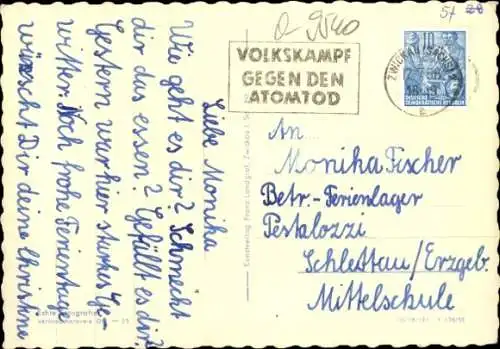 57 28
O-9540
VOLKSKAMPF
GEGEN DEN
ATOMTOD
10
DEUTSCHE
DEMOKRATISCHE REPUBLIK
Liebe Monika
Wie geht es dir? Schmeckt
dir das essen? Gefällt es dir?
Gestern war hier starkes Ge-
witter. Noch frohe Ferientage
wünscht Dir deine Christine
An
Monika Fischer
Betr.-Ferienlager
Pestalozzi
Schlettau/Erzgeb.
Mittelschule
Kunstverlag Franz Landgraf, Zwickau i. Sa.